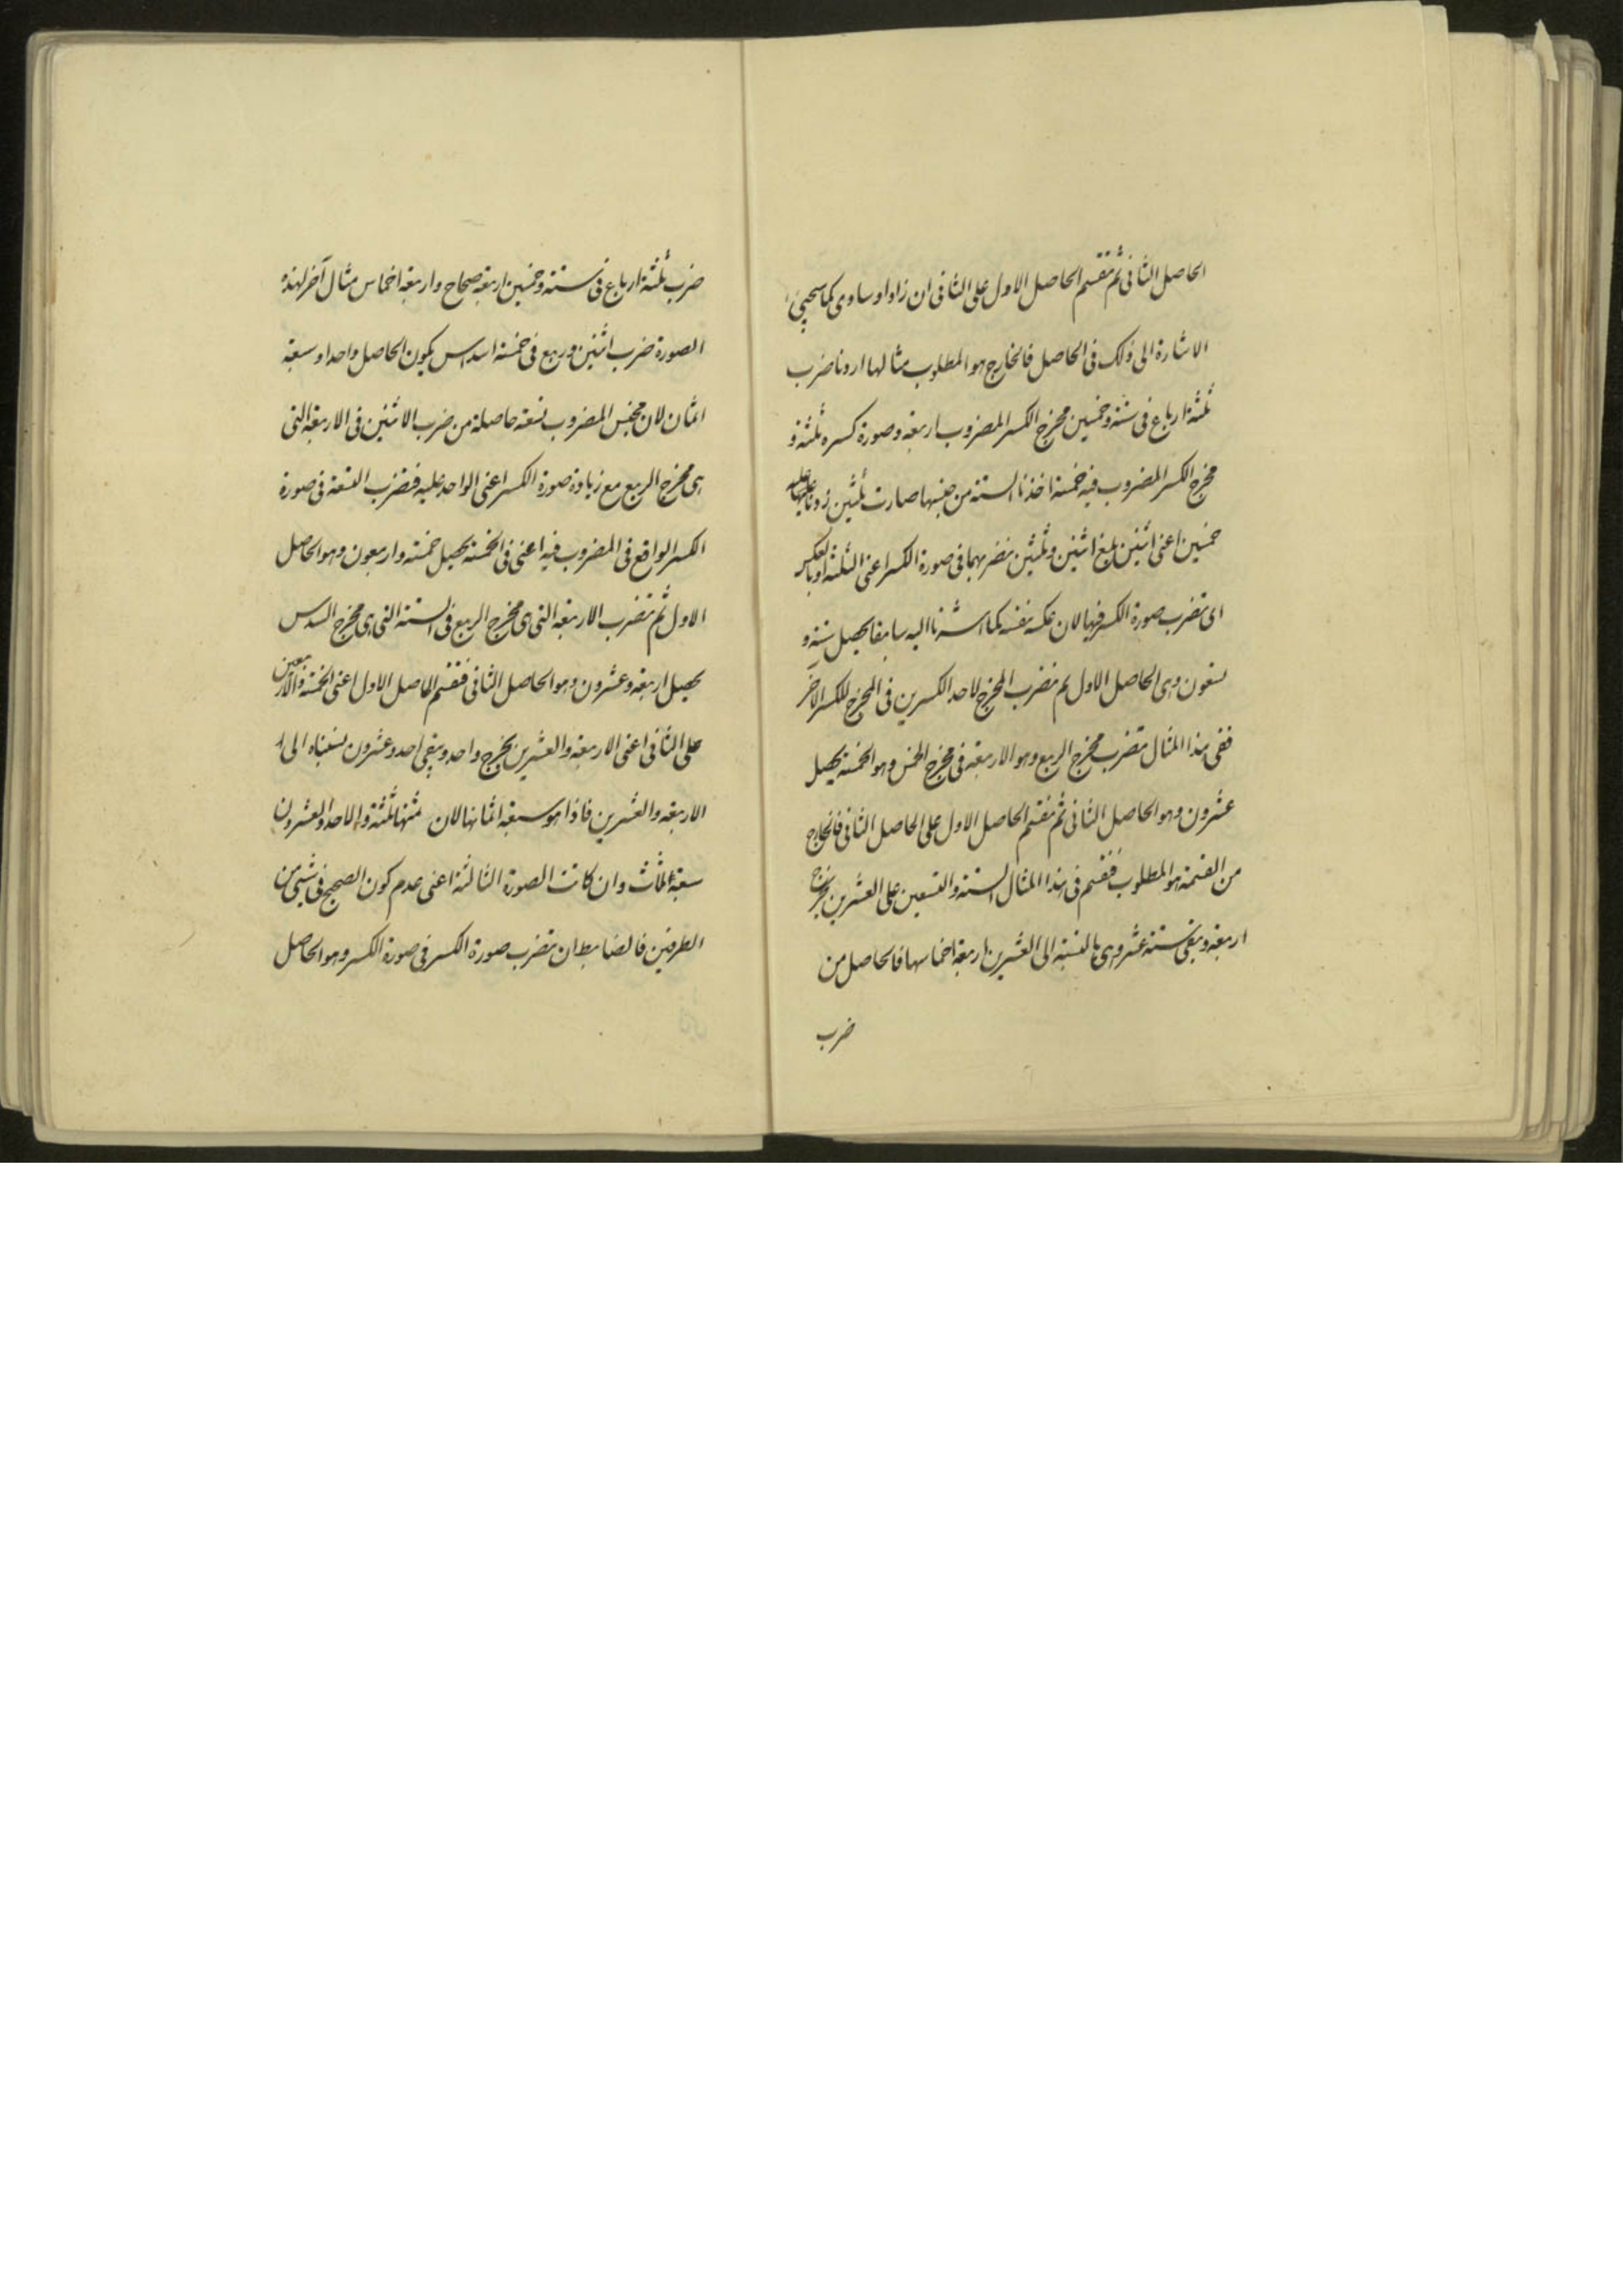 الحاصل الثانى ثم نقسم الحاصل الاول على الثانى ان زاد او ساوى كما سيجيئ
الاشارة الى ذلك فى الحاصل فالخارج هو المطلوب مثالها اردنا ضرب
ثلثة ارباع فى ستة وخمسين مخرج الكسر المضروب اربعة وصورة كسره ثلثة و
مخرج الكسر المضروب فيه خمسة اخذنا الستة من جنسها صارت ثلثين زدنا عليها
خمسين اعنى اثنين بلغ اثنين وثلثين نضربهما فى صورة الكسر اعنى الثلثة او بالعكس
اى نضرب صورة الكسر فيها لان عكسه نفسه كما اشرنا اليه سابقا يحصل ستة و
تسعون وهى الحاصل الاول ثم نضرب المخرج لاحد الكسرين فى المخرج للكسر الآخر
ففى هذا المثال نضرب مخرج الربع وهو الاربعة فى مخرج الخمس وهو الخمسة يحصل
عشرون وهو الحاصل الثانى ثم نقسم الحاصل الاول على الحاصل الثانى فالخارج
من القسمة هو المطلوب فنقسم فى هذا المثال الستة والتسعين على العشرين يخرج
اربعة وبقى ستة عشر وهى بالنسبة الى العشرين اربعة اخماسها فالحاصل من
ضرب
ضرب ثلثة ارباع فى ستة وخمسين اربعة صحاح واربعة اخماس مثال آخر لهذه
الصورة ضرب اثنين وربع فى خمسة اسداس يكون الحاصل واحدا وسبعة
اثمان لان مجنس المضروب تسعة حاصلة من ضرب الاثنين فى الاربعة التى
هى مخرج الربع مع زيادة صورة الكسر اعنى الواحد عليه فنضرب التسعة فى صورة
الكسر الواقع فى المضروب فيه اعنى فى الخمسة يحصل خمسة واربعون وهو الحاصل
الاول ثم نضرب الاربعة التى هى مخرج الربع فى الستة التى هى مخرج السدس
يحصل اربعة وعشرون وهو الحاصل الثانى فنقسم الحاصل الاول اعنى الخمسة والاربعين
على الثانى اعنى الاربعة والعشرين يخرج واحد ويبقى احد وعشرون نسبناه الى
الاربعة والعشرين فاذا هو سبعة اثمانها لان ثمنها ثلثة والاحد والعشرون
سبعة اثلاث وان كانت الصورة الثالثة اعنى عدم كون الصحيح فى شيئ من
الطرفين فالضابط ان نضرب صورة الكسر فى صورة الكسر وهو الحاصل